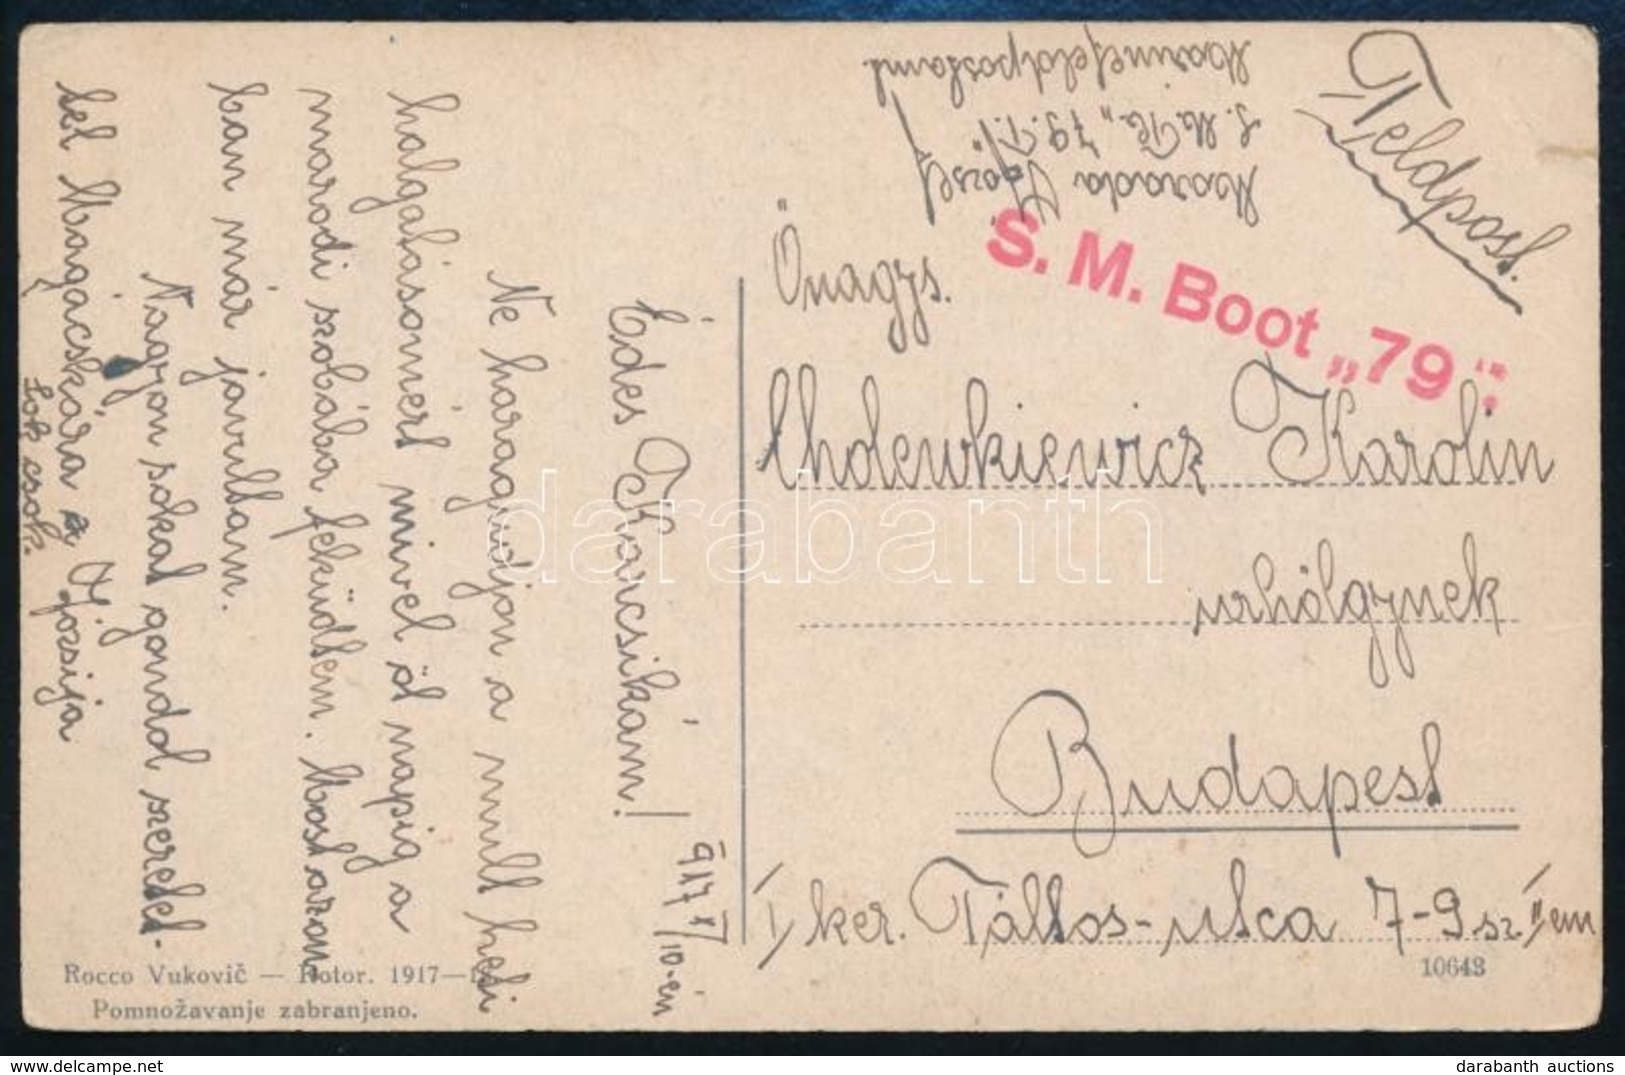 Feldpost.
József
S. M. Tb. „79. T."
Marinefeldpostamt.
S. M. Boot „79“.
Önagys.
Cholewkiewicz Karolin
urhölgynek
Budapest
I/ ker. Táltos-utca 7-9 sz. II/em
10643
917 X/10-én
Édes Karcsikám!
Ne haragudjon a mult heti
halgatásomért mivel öt napig a
marodi szobába feküdtem. Most azon
ban már javultam.
Nagyon sokat gondol szeretet
tel Magácskára a Józsija
Sok csók.
Rocco Vukovič — Kotor. 1917—
Pomnožavanje zabranjeno.
darabanth
darabanth auctions